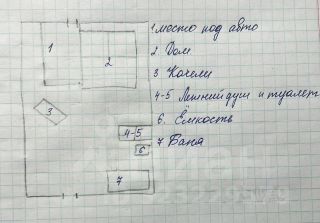 1 место под авто
2. Дом
3 Качели
4-5 Летний душ и туалет
6. Ёмкость
7 Баня
1
2
3
4-5
6
7